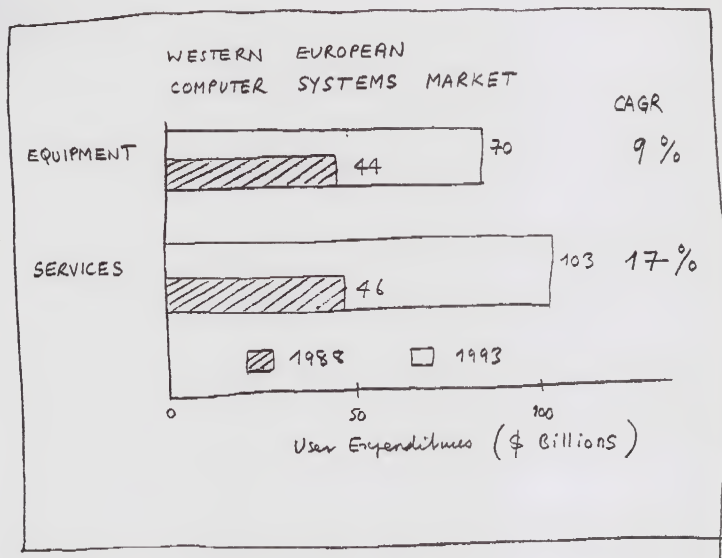 WESTERN EUROPEAN
COMPUTER SYSTEMS MARKET
CAGR
EQUIPMENT 44 70 9 %
SERVICES 46 103 17 %
1988 1993
0 50 100
User Expenditures ($ Billions)